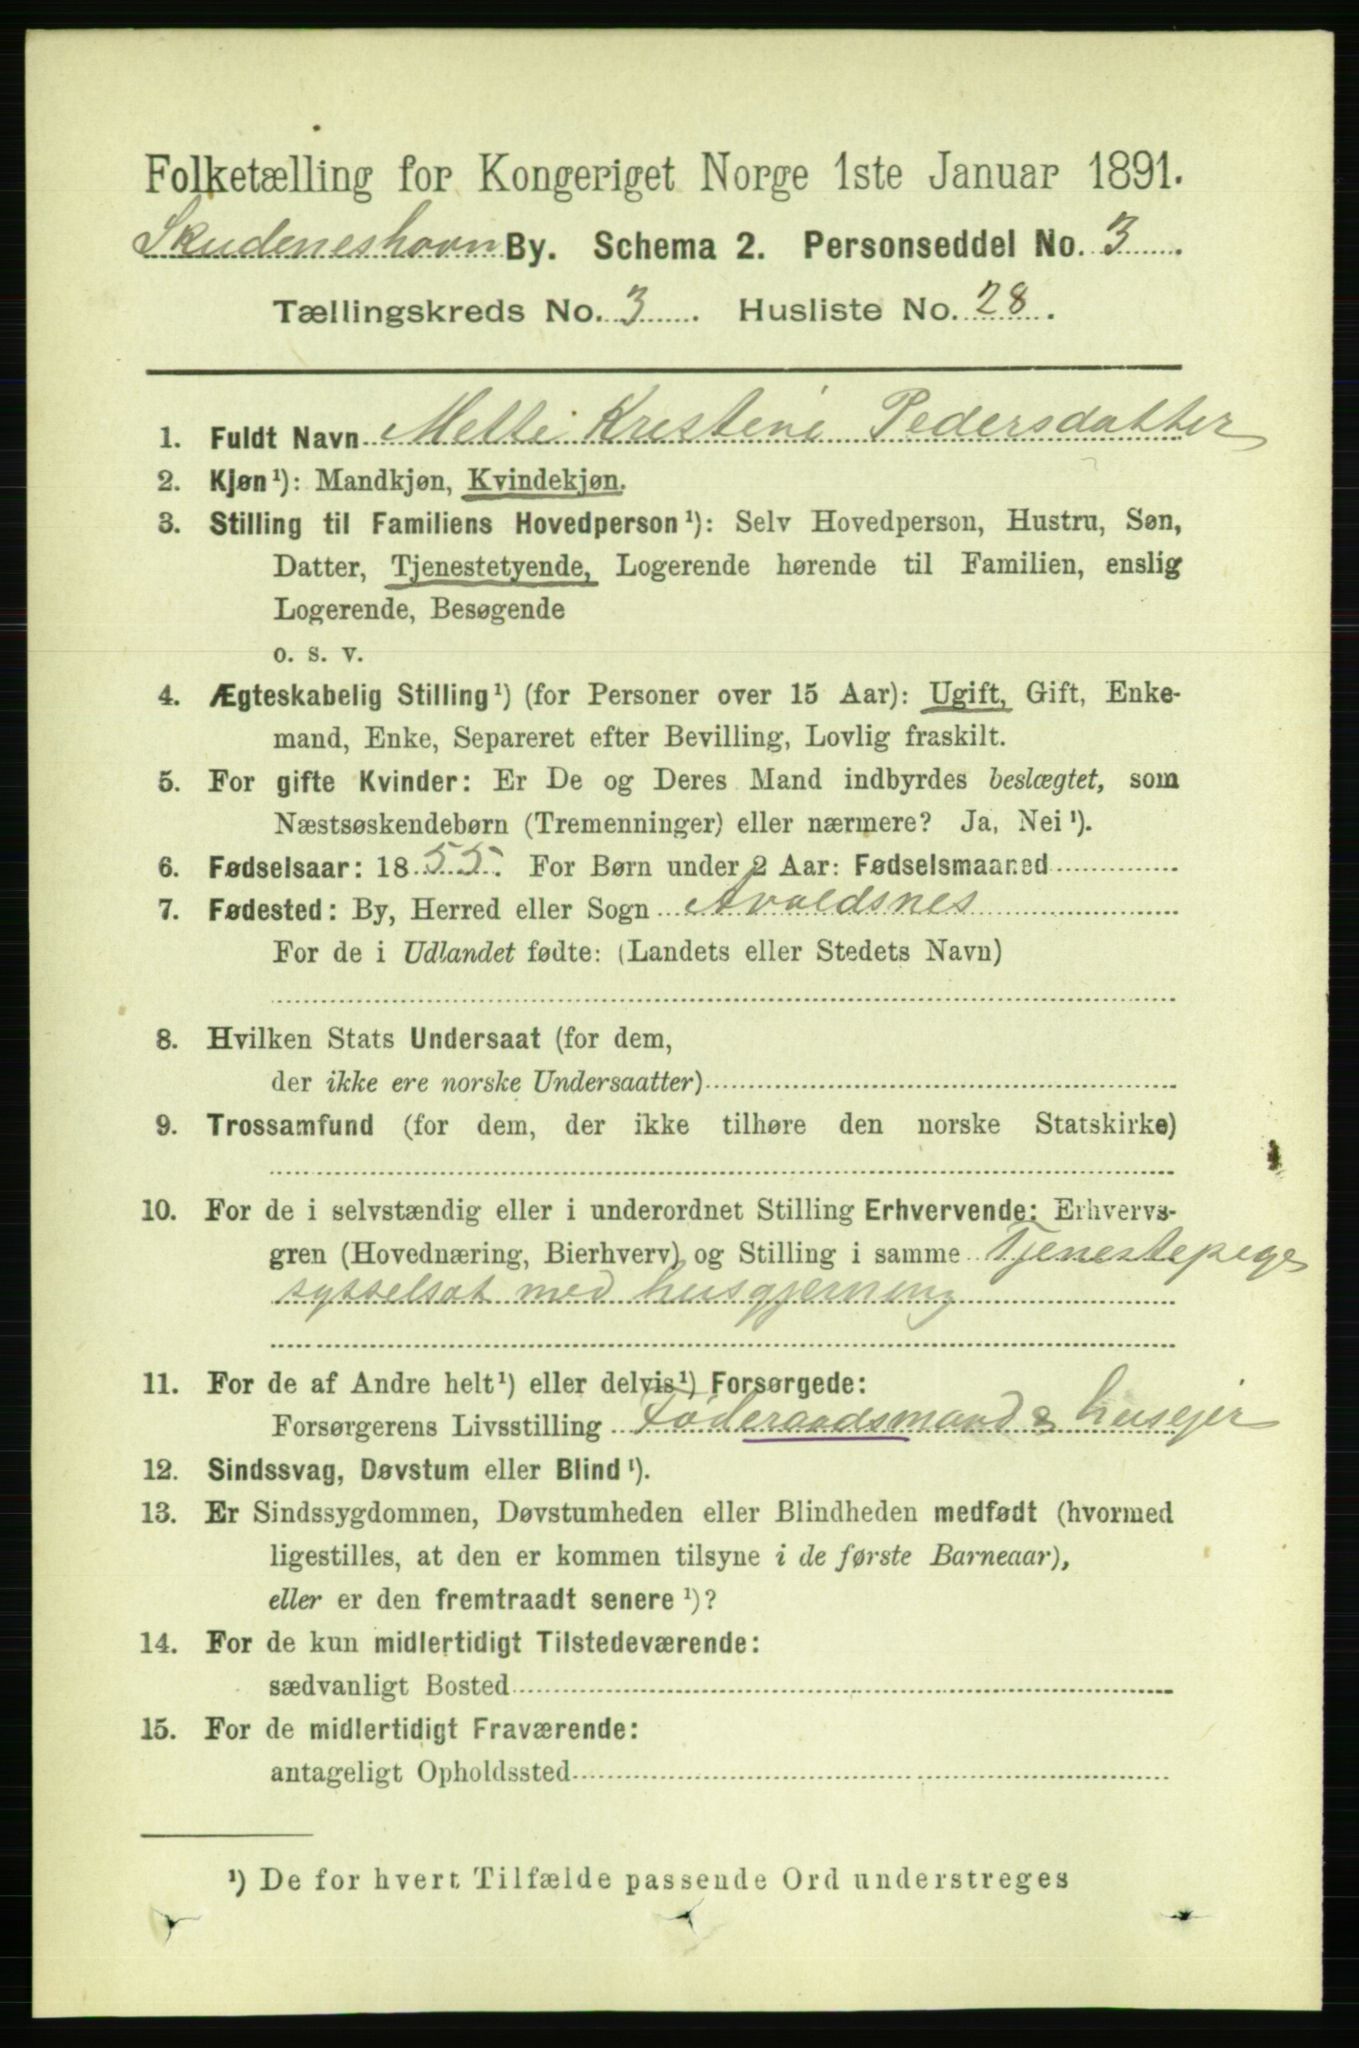 Folketælling for Kongeriget Norge 1ste Januar 1891.
Skudeneshavn By. Schema 2. Personseddel No. 3.
Tællingskreds No. 3. Husliste No. 28.
1. Fuldt Navn Mette Kristene Pedersdatter
2. Kjøn¹): Mandkjøn, Kvindekjøn.
3. Stilling til Familiens Hovedperson¹): Selv Hovedperson, Hustru, Søn,
Datter, Tjenestetyende, Logerende hørende til Familien, enslig
Logerende, Besøgende
o. s. v.
4. Ægteskabelig Stilling¹) (for Personer over 15 Aar): Ugift, Gift, Enke-
mand, Enke, Separeret efter Bevilling, Lovlig fraskilt.
5. For gifte Kvinder: Er De og Deres Mand indbyrdes beslægtet, som
Næstsøskendebørn (Tremenninger) eller nærmere? Ja, Nei¹).
6. Fødselsaar: 1855. For Børn under 2 Aar: Fødselsmaaned
7. Fødested: By, Herred eller Sogn Avaldsnes
For de i Udlandet fødte: (Landets eller Stedets Navn)
8. Hvilken Stats Undersaat (for dem,
der ikke ere norske Undersaatter)
9. Trossamfund (for dem, der ikke tilhøre den norske Statskirke)
10. For de i selvstændig eller i underordnet Stilling Erhvervende: Erhvervs-
gren (Hovednæring, Bierhverv) og Stilling i samme Tjenestepige
sysselsat med husgjerning
11. For de af Andre helt¹) eller delvis¹) Forsørgede:
Forsørgerens Livsstilling Føderaadsmand & husejer
12. Sindssvag, Døvstum eller Blind¹).
13. Er Sindssygdommen, Døvstumheden eller Blindheden medfødt (hvormed
ligestilles, at den er kommen tilsyne i de første Barneaar),
eller er den fremtraadt senere¹)?
14. For de kun midlertidigt Tilstedeværende:
sædvanligt Bosted
15. For de midlertidigt Fraværende:
antageligt Opholdssted
¹) De for hvert Tilfælde passende Ord understreges